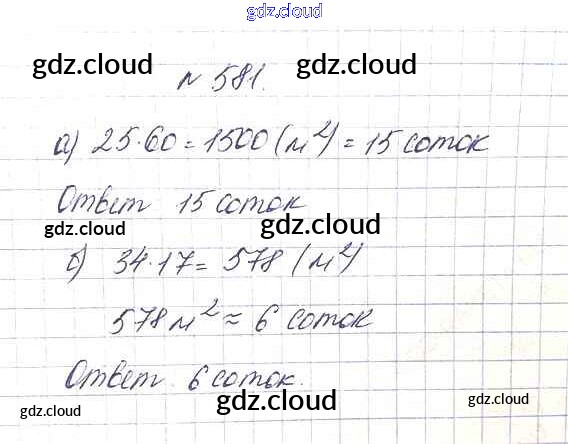 gdz.cloud
gdz.cloud gdz.cloud
№ 581.
а) 25·60 = 1500 (м²) = 15 соток
Ответ 15 соток
gdz.cloud gdz.cloud
б) 34·17 = 578 (м²)
578 м² ≈ 6 соток
Ответ. 6 соток.
gdz.cloud gdz.cloud gdz.cloud